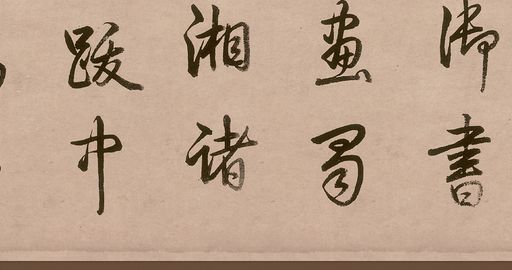 御書
畫蜀
湘諸
跋中